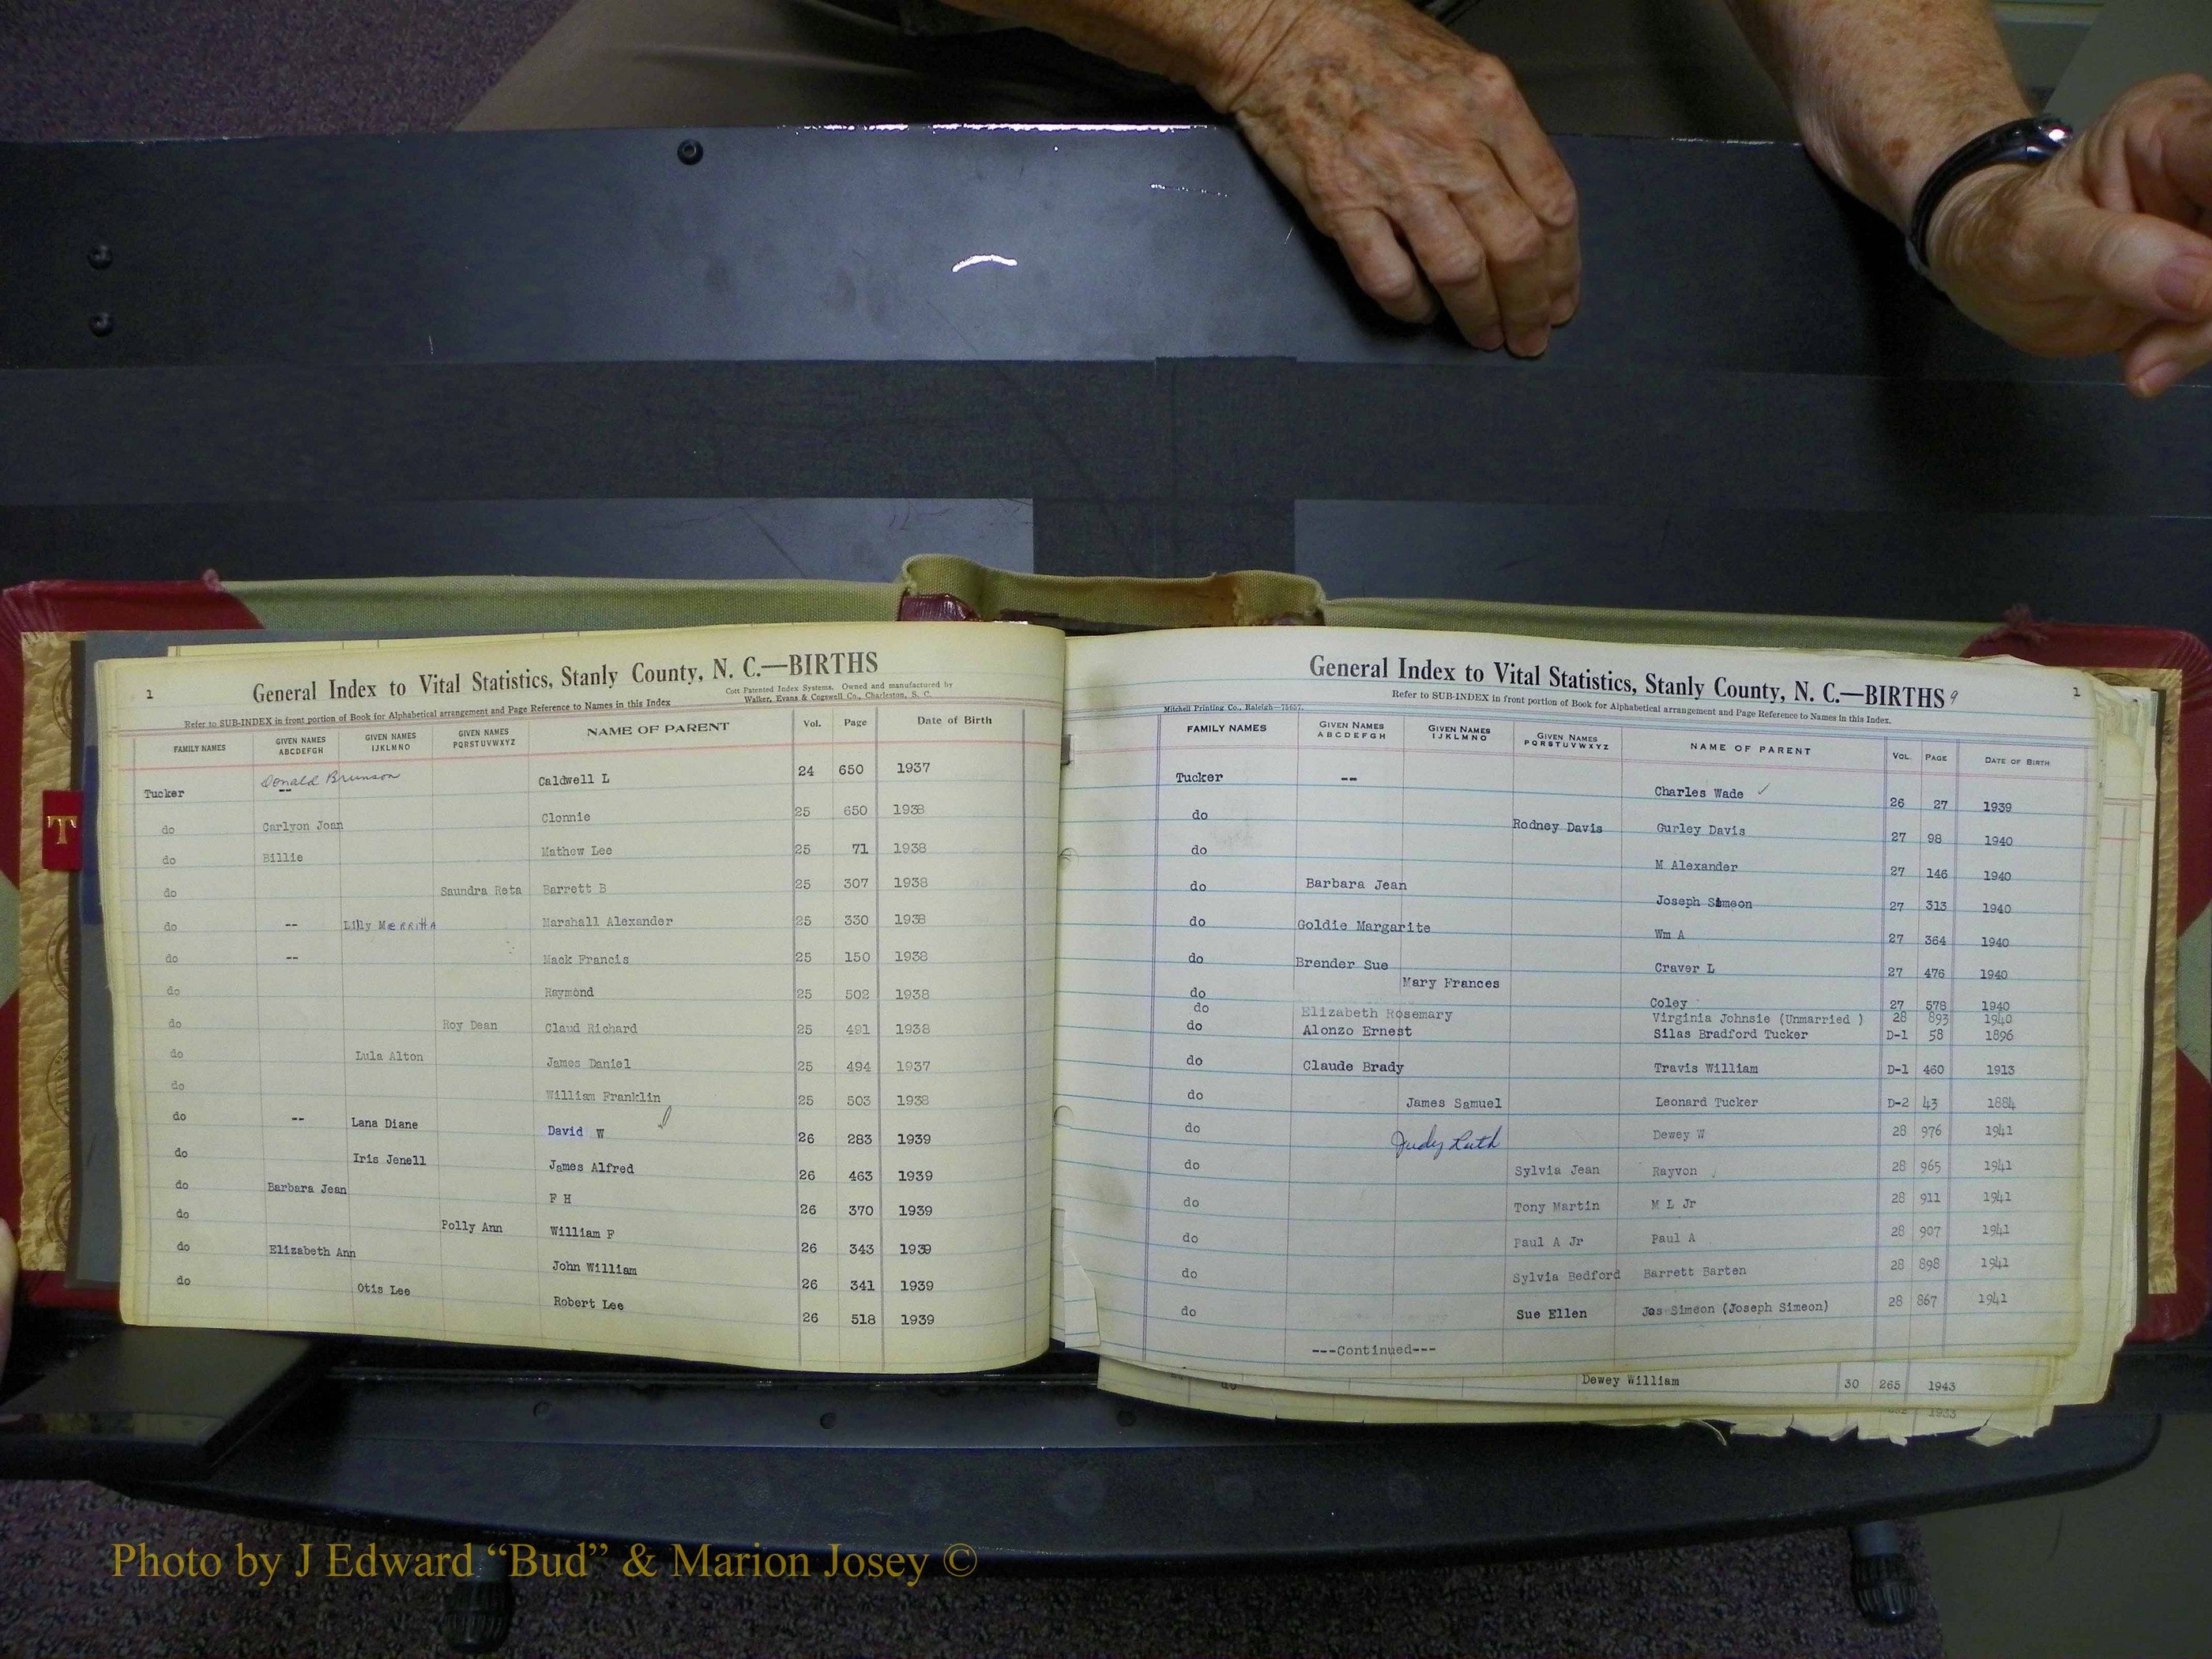 1
General Index to Vital Statistics, Stanly County, N. C.—BIRTHS
Refer to SUB-INDEX in front portion of Book for Alphabetical arrangement and Page Reference to Names in this Index
Cott Patented Index Systems. Owned and manufactured by
Walker, Evans & Cogswell Co., Charleston, S. C.
FAMILY NAMES GIVEN NAMES ABCDEFGH GIVEN NAMES IJKLMNO GIVEN NAMES PQRSTUVWXYZ NAME OF PARENT Vol. Page Date of Birth
Tucker Donald Brunson -- Caldwell L 24 650 1937
do Carlyon Joan Clonnie 25 650 1938
do Billie Mathew Lee 25 71 1938
do Saundra Reta Barrett B 25 307 1938
do -- Lilly Merritta Marshall Alexander 25 330 1938
do -- Mack Francis 25 150 1938
do Raymond 25 502 1938
do Roy Dean Claud Richard 25 491 1938
do Lula Alton James Daniel 25 494 1937
do William Franklin 25 503 1938
do -- Lana Diane David W 26 283 1939
do Iris Jenell James Alfred 26 463 1939
do Barbara Jean F H 26 370 1939
do Polly Ann William F 26 343 1939
do Elizabeth Ann John William 26 341 1939
do Otis Lee Robert Lee 26 518 1939
T
General Index to Vital Statistics, Stanly County, N. C.—BIRTHS 9
1
Refer to SUB-INDEX in front portion of Book for Alphabetical arrangement and Page Reference to Names in this Index.
Mitchell Printing Co., Raleigh—75657.
FAMILY NAMES GIVEN NAMES ABCDEFGH GIVEN NAMES IJKLMNO GIVEN NAMES PQRSTUVWXYZ NAME OF PARENT VOL. PAGE DATE OF BIRTH
Tucker -- Charles Wade ✓ 26 27 1939
do Rodney Davis Gurley Davis 27 98 1940
do M Alexander 27 146 1940
do Barbara Jean Joseph Simeon 27 313 1940
do Goldie Margarite Wm A 27 364 1940
do Brender Sue Craver L 27 476 1940
do Mary Frances Coley 27 578 1940
do Elizabeth Rosemary Virginia Johnsie (Unmarried ) 28 893 1940
do Alonzo Ernest Silas Bradford Tucker D-1 58 1896
do Claude Brady Travis William D-1 460 1913
do James Samuel Leonard Tucker D-2 43 1884
do Judy Ruth Dewey W 28 976 1941
do Sylvia Jean Rayvon 28 965 1941
do Tony Martin M L Jr 28 911 1941
do Paul A Jr Paul A 28 907 1941
do Sylvia Bedford Barrett Barten 28 898 1941
do Sue Ellen Jos Simeon (Joseph Simeon) 28 867 1941
---Continued---
do Dewey William 30 265 1943
1933
Photo by J Edward “Bud” & Marion Josey ©